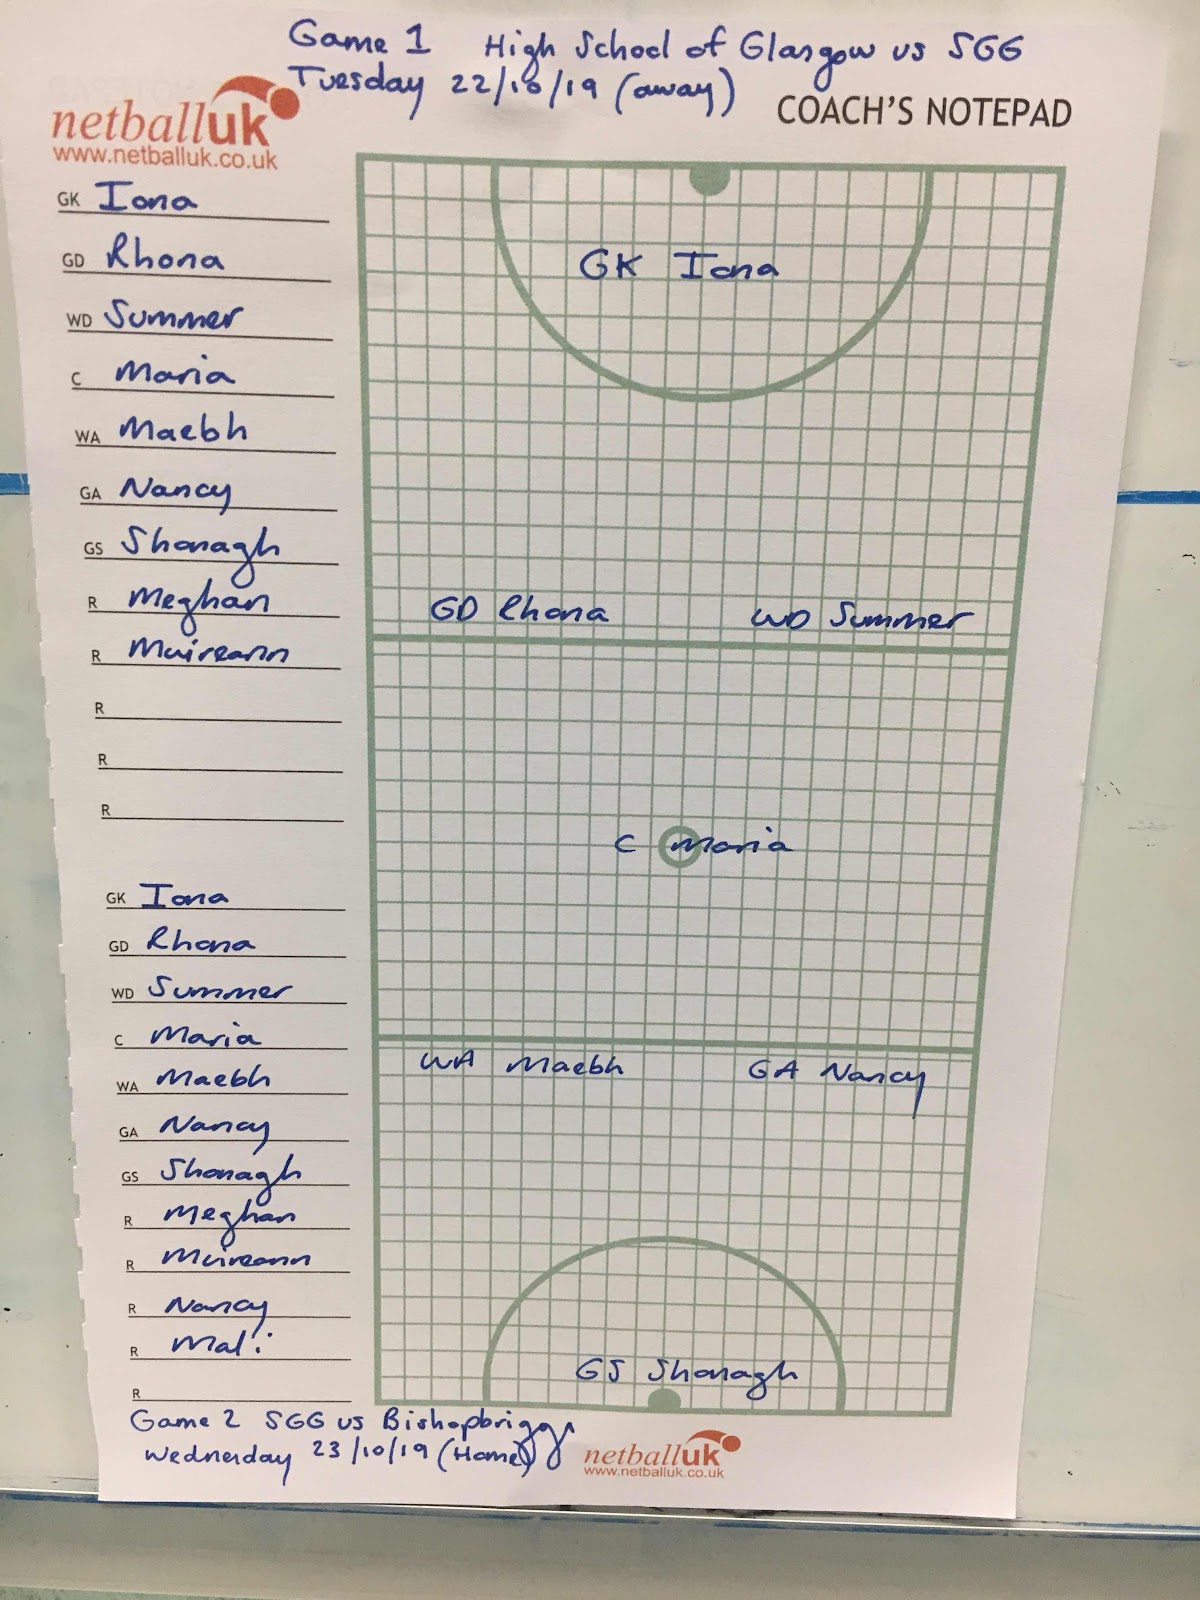 Game 1 High School of Glasgow vs SGG
Tuesday 22/10/19 (away)
netballuk
www.netballuk.co.uk
COACH'S NOTEPAD
GK Iona
GD Rhona
WD Summer
C Maria
WA Maebh
GA Nancy
GS Shonagh
R Meghan
R Muireann
R
R
R
GK Iona
GD Rhona
WD Summer
C Maria
WA Maebh
GA Nancy
GS Shonagh
R Meghan
R Muireann
R Nancy
R Mali
R
GK Iona
GD Rhona WD Summer
C Maria
WA Maebh GA Nancy
GS Shonagh
Game 2 SGG vs Bishopbriggs
Wednesday 23/10/19 (Home)
netballuk
www.netballuk.co.uk